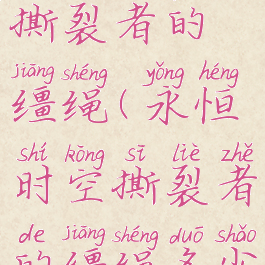 撕裂者的
jiāng shéng yǒng héng
缰绳(永恒
shí kōng sī liè zhě
时空撕裂者
de jiāng shéng duō shǎo
的缰绳多少